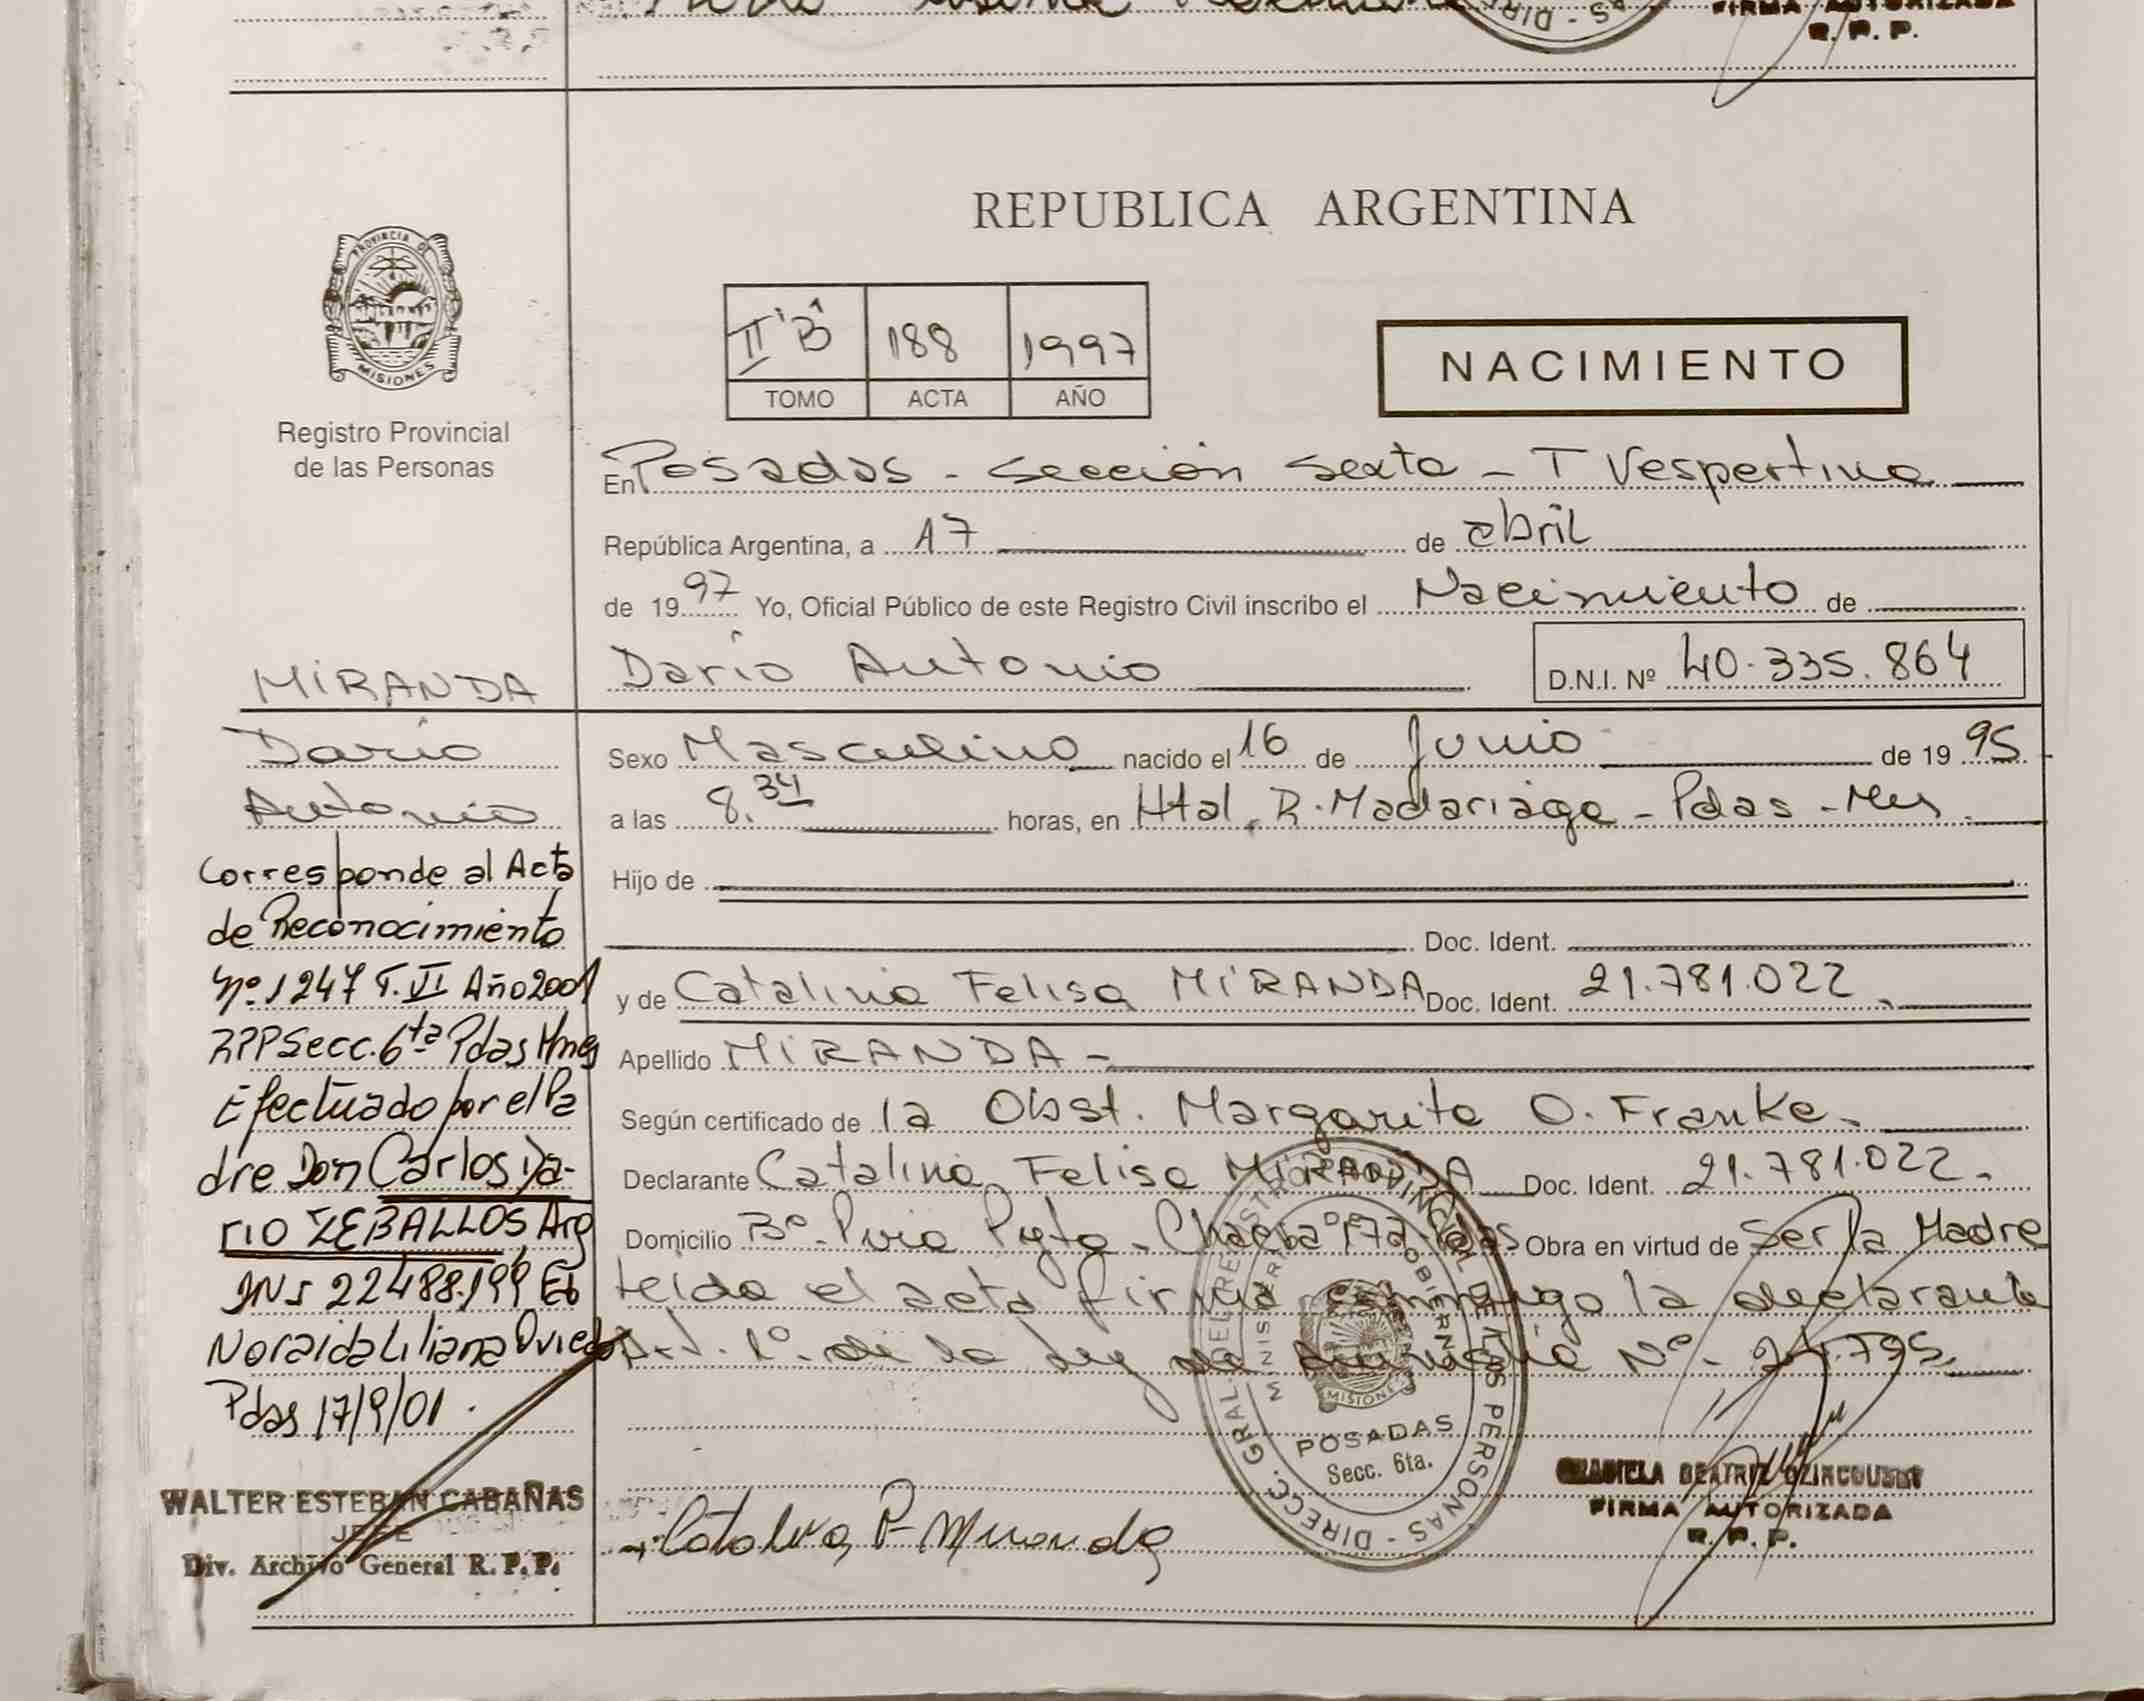 FIRMA AUTORIZADA
R. P. P.
REPUBLICA ARGENTINA
PROVINCIA DE
MISIONES
Registro Provincial
de las Personas
II "B" 188 1997
TOMO ACTA AÑO
NACIMIENTO
En Posadas - Sección Sexta - T Vespertino
República Argentina, a 17 de abril
de 1997 Yo, Oficial Público de este Registro Civil inscribo el Nacimiento de
Darío Antonio D.N.I. Nº 40.335.864
Sexo Masculino nacido el 16 de Junio de 1995
a las 8.34 horas, en Htal. R. Madariaga - Pdas - Mnes
Hijo de
Doc. Ident.
y de Catalina Felisa MIRANDA Doc. Ident. 21.781.022
Apellido MIRANDA -
Según certificado de la Obst. Margarita O. Franke
Declarante Catalina Felisa MIRANDA Doc. Ident. 21.781.022.
Domicilio Bº Puia Pyta - Chacra 172 Pdas Obra en virtud de Ser la Madre
leida el acta firma conmigo la declarante
Art. 1º de la ley de amnistia Nº 24.795
Catalina F Miranda
MIRANDA
Darío
Antonio
Corresponde al Acta
de Reconocimiento
Nº 1247 T. VI Año 2001
RPP Secc. 6ta Pdas Mnes
Efectuado por el Pa
dre Don Carlos Da-
rio ZEBALLOS Arg
DNI 22488.199
Noraida Liliana Oviedo
Pdas 17/9/01.
WALTER ESTEBAN CABAÑAS
JEFE
Div. Archivo General R. P. P.
DIRECC. GRAL. DEL REGISTRO PROVINCIAL DE LAS PERSONAS
MINISTERIO DE GOBIERNO
MISIONES
POSADAS
Secc. 6ta.
BEATRIZ
FIRMA AUTORIZADA
R. P. P.